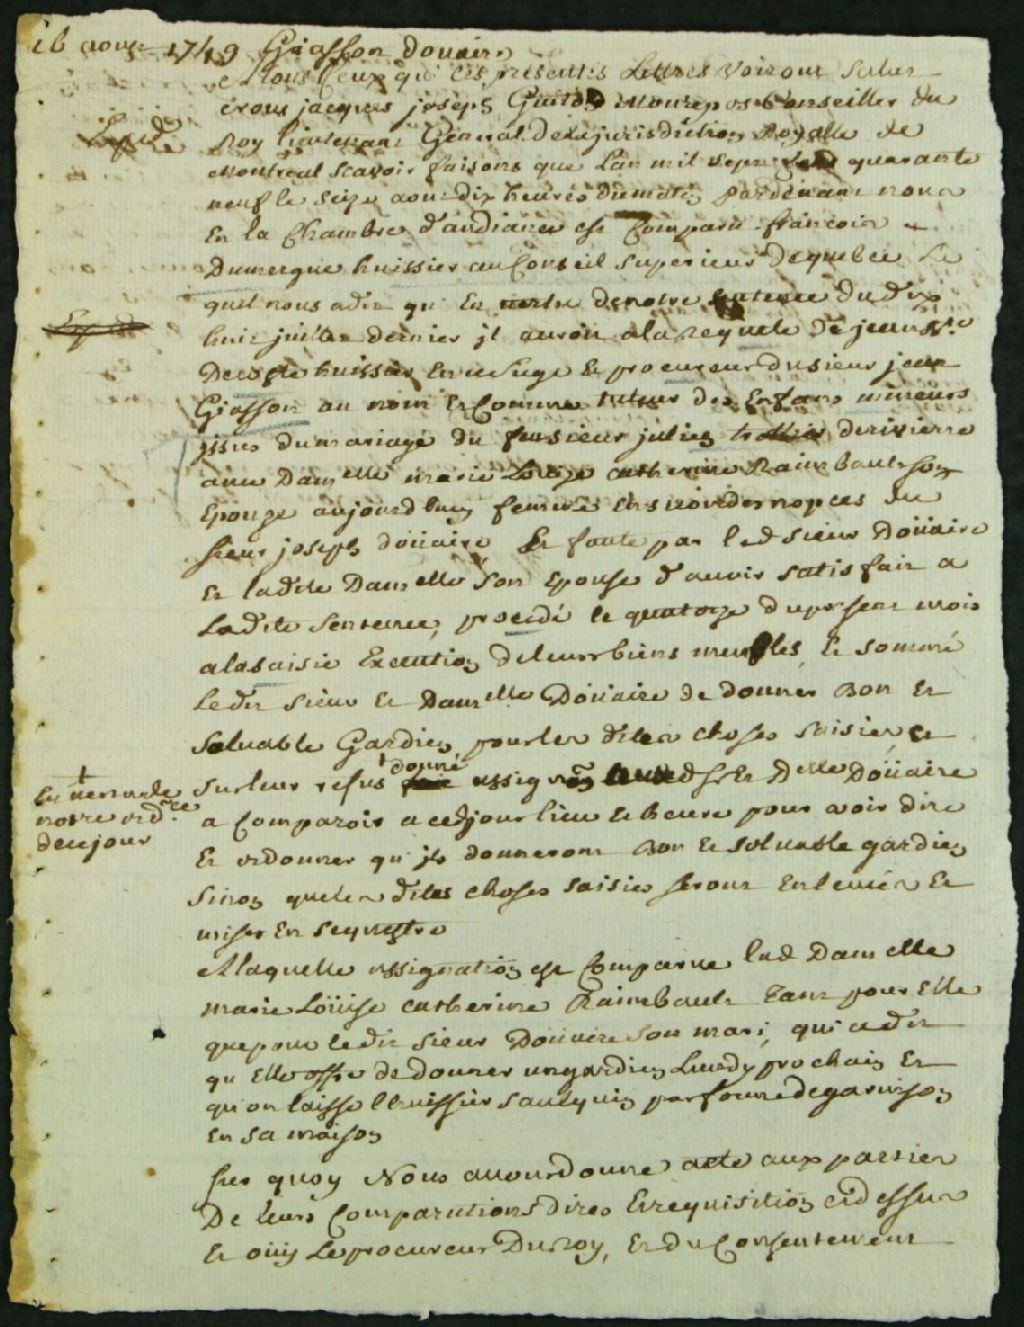 16 aoust 1749 Giasson douaire
A tous ceux qui ces presentes Lettres Verront Salut
Jacques joseph Guiton Monrepos Conseiller du
Roy lieutenant General de la jurisdiction Royalle de
Montreal Scavoir faisons que Lan mil sept quarante
neuf le seize aout dix heures du matin pardevant nous
En la Chambre d'audiance est Comparu francois
Dumergue huissier au Conseil Superieur de quebec Le
quel nous a dit qu' En vertu de notre sentence du dix
huit juillet dernier il auroit a la Requete de jean Bte
Decoste huissier En ce Siege Et procureur du sieur jean
Giasson au nom Et Comme tuteur des Enfans mineurs
issus du mariage du feu sieur julien trottier derivierre
avec Damelle marie Louise catherine Raimbault son
Epouze aujourdhuy femme En secondes nopces du
sieur joseph doüaire Et faute par led sieur Doüaire
Et ladite Damelle son Epouse d'avoir satisfait a
Ladite Sentence, procedé le quatorze du present mois
a la saisie Execution de leurs biens meubles, Et sommé
Ledit Sieur Et Damelle Doüaire de donner Bon Et
Solvable Gardien pour les dites choses saisies, Et
Sur leur refus + donné assignaon aud Sr Et Delle Doüaire
+
En vertu de
notre ordce
de ce jour
a Comparoir a cedjour lieu Et heure pour voir dire
Et ordonner qu'ils donneront Bon Et solvable gardien
Sinon que les dites choses saisies seront Enlevées Et
mises En sequestre
A laquelle assignation est Comparue lad Damelle
marie Loüise catherine Raimbault Tant pour Elle
que pour ledit sieur Doüaire son mari, qui a dit
qu'Elle offre de donner un gardien Lundy prochain Et
qu'on laisse l'huissier par forme de garnison
En sa maison
Sur quoy Nous avons donné acte aux parties
De leurs Comparutions dires Et requisition cy dessus
Et oüy Le procureur Du Roy, Et du Consentement